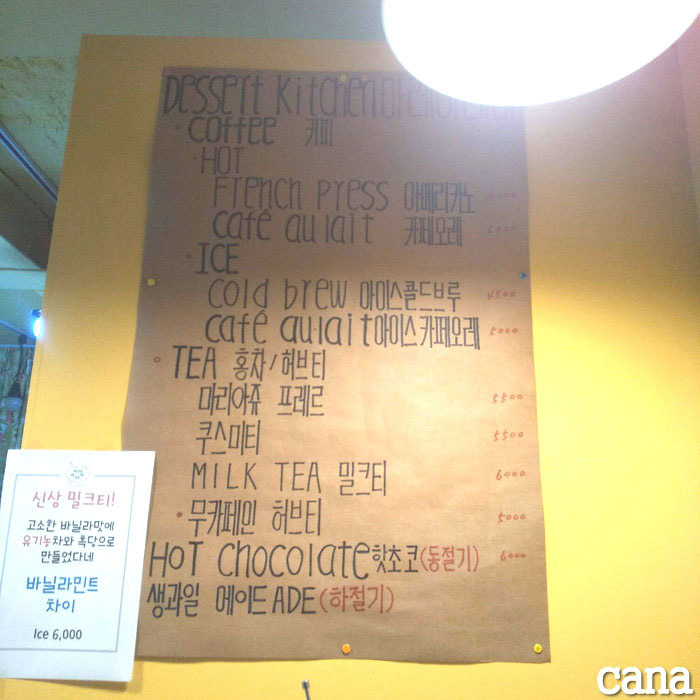 Dessert Kitchen
• Coffee 커피
• HOT
French press 아메리카노 4000
café au lait 카페오레 5000
• ICE
cold brew 아이스콜드브루 4500
café au lait 아이스카페오레 5000
• TEA 홍차/허브티
마리아쥬 프레르 5500
쿠스미티 5500
MILK TEA 밀크티 6000
• 무카페인 허브티 5000
HOT chocolate 핫초코(동절기) 6000
생과일 에이드 ADE (하절기)
신상 밀크티!
고소한 바닐라맛에
유기농차와 흑당으로
만들었다네
바닐라민트
차이
Ice 6,000
cana